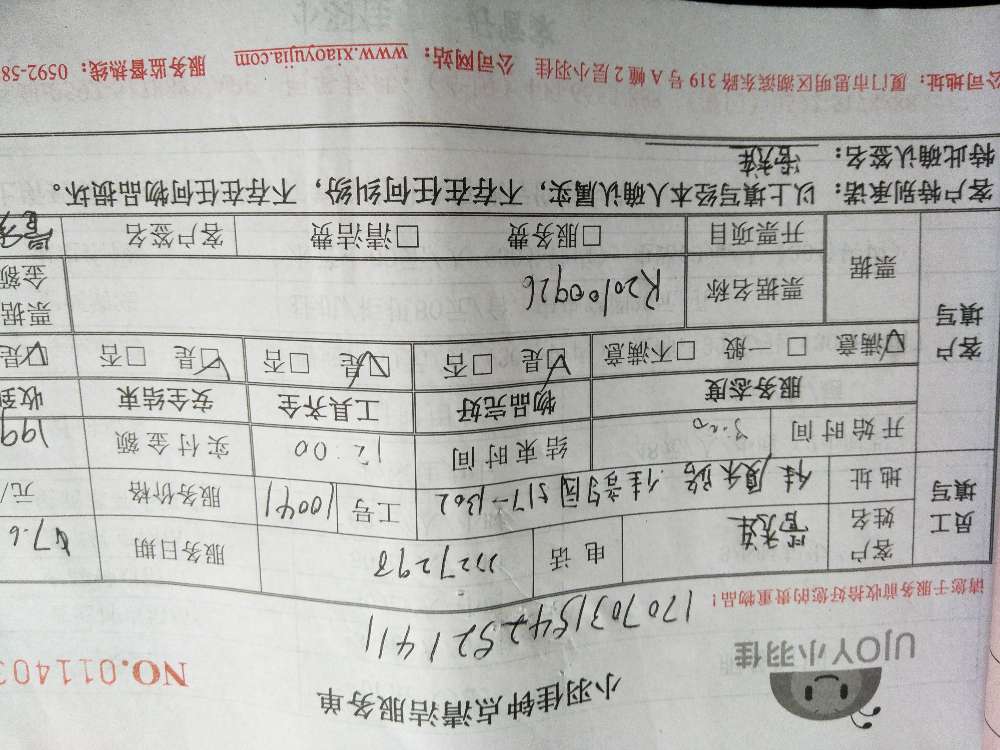 小羽佳钟点清洁服务单
UJOY小羽佳
NO.011403
1707031542521411
请您于服务前收拾好您的贵重物品！
员工填写
客户姓名
电话
2227298
服务日期
地址
517-1302
工号
10041
服务价格
元/
开始时间
结束时间
12:00
实付金额
199
客户填写
服务态度
物品完好
工具齐全
安全结束
收到
☑满意 □一般 □不满意
☑是 □否
☑是 □否
☑是 □否
☑是
票据
票据名称
R20100926
票据金额
开票项目
□服务费 □清洁费
客户签名
客户特别承诺：以上填写经本人确认属实，不存在任何纠纷，不存在任何物品损坏。
特此确认签名：
公司地址：厦门市思明区湖滨东路319号A幢2层小羽佳 公司网站：www.xiaoyujia.com 服务监督热线：0592-58